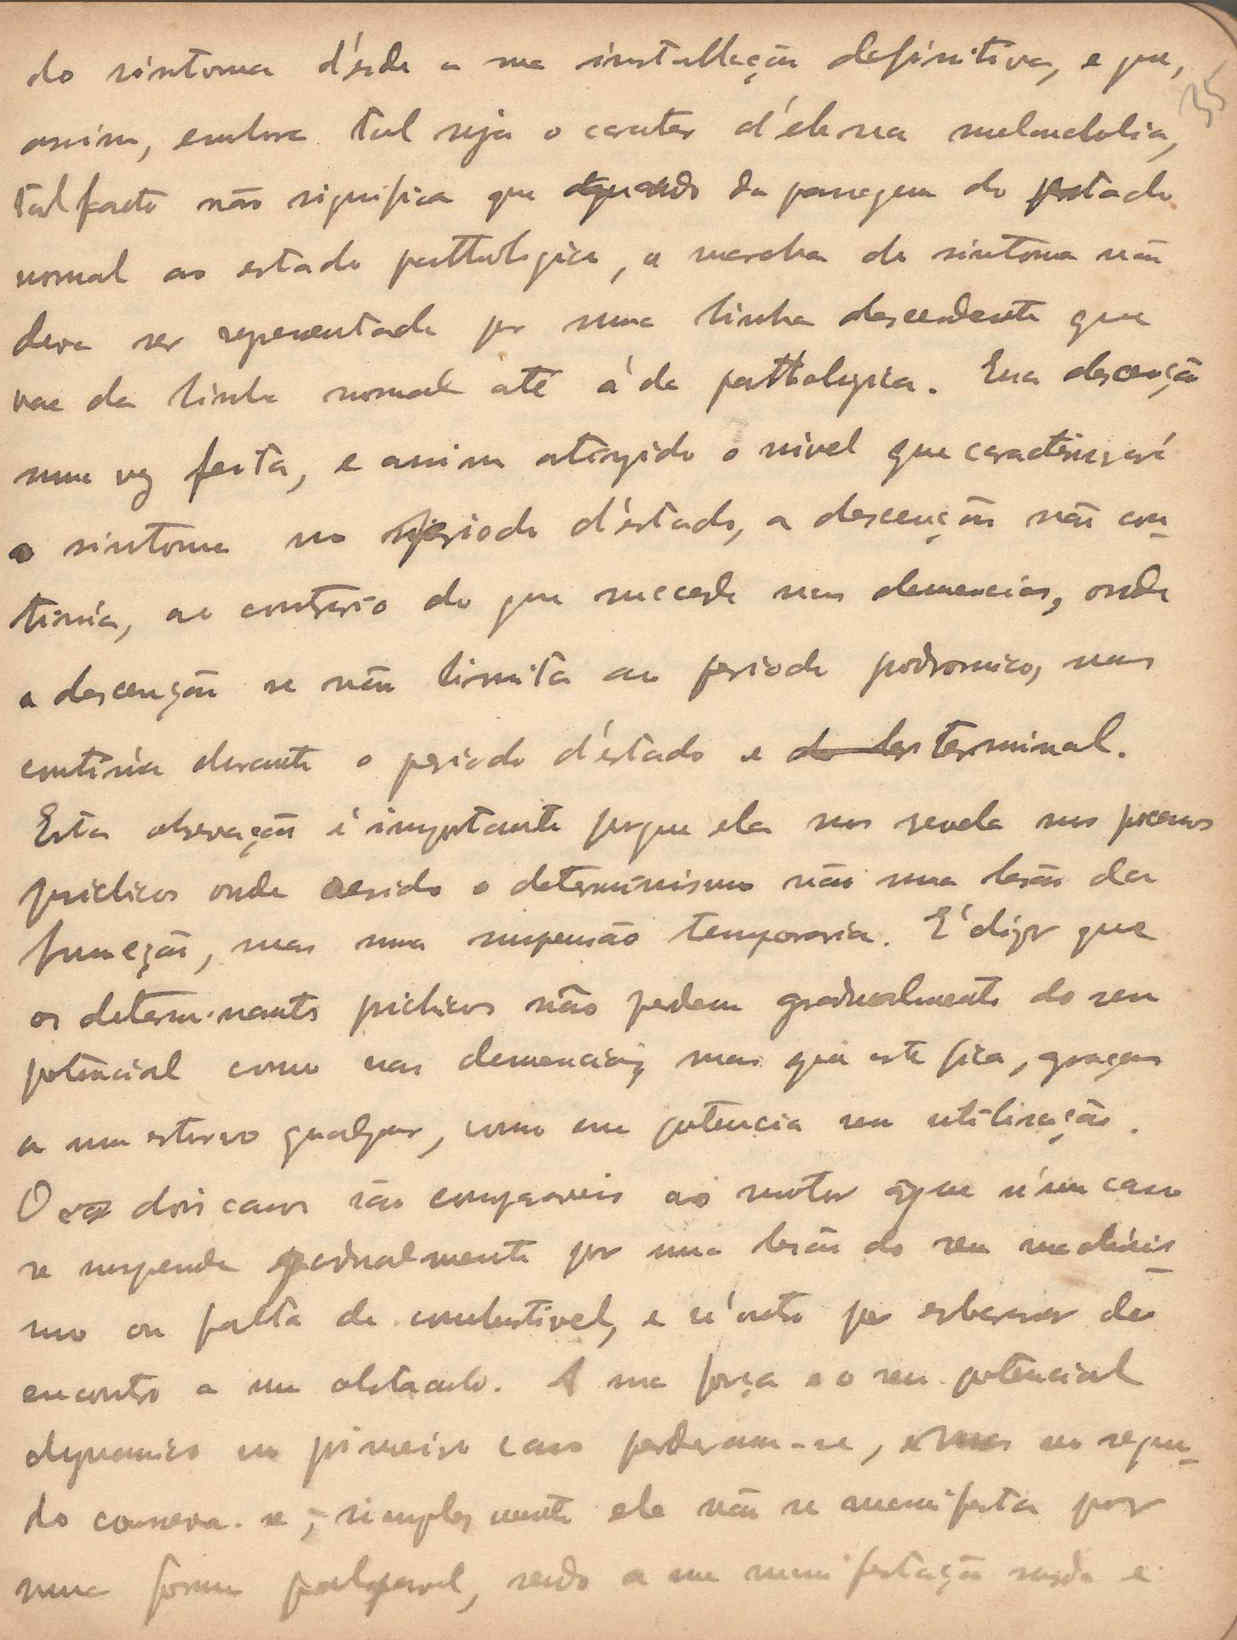 35
do sintoma d'ésde a sua installação definitiva, e que,
assim, embora tal seja o carater d'ele na melancholia,
tal facto não significa que quando da passagem do estado
normal ao estado pathologico, a marcha do sintoma não
deva ser representada por uma linha descendente que
vae da linha normal até á da pathologica. Essa descenção
uma vez feita, e assim atingido o nivel que caracterisará
o sintoma no periodo d'éstado, a descenção não con-
tinúa, ao contrario do que succede nas demencias, onde
a descenção se não limita ao periodo prodromico, mas
continúa durante o periodo d'éstado e do des terminal.
Esta observação é importante porque ela nos revela nos processos
psichicos onde reside o determinismo não uma lesão da
funcção, mas uma suspensão temporaria. É dizer que
os determinantes psichicos não perdem gradualmente do seu
potencial como nas demencias, mas que este fica, graças
a um estorvo qualquer, como em potencia sem utilisação.
Os dois casos são comparaveis ao motor que n'um caso
se suspende gradualmente por uma lesão do seu machinis-
mo ou falta de combustivel, e n'outro por esbarrar de
encontro a um obstaculo. A sua força e o seu potencial
dynamico no primeiro caso perderam-se, mas no segun-
do conserva-se; simplesmente ele não se manifesta por
uma forma palpavel, sendo a sua manifestação surda e